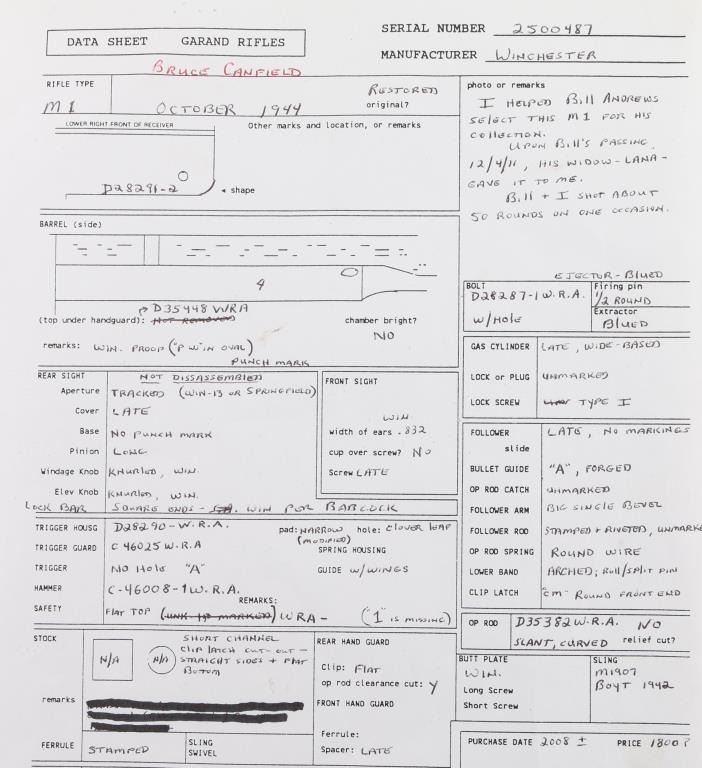 DATA SHEET GARAND RIFLES
SERIAL NUMBER 2500487
MANUFACTURER WINCHESTER
BRUCE CANFIELD
RIFLE TYPE
M1 OCTOBER 1944
RESTORED
original?
photo or remarks
I HELPED BILL ANDREWS
SELECT THIS M1 FOR HIS
COLLECTION.
UPON BILL'S PASSING
12/4/11, HIS WIDOW - LANA -
GAVE IT TO ME.
BILL + I SHOT ABOUT
50 ROUNDS ON ONE OCCASION.
LOWER RIGHT FRONT OF RECEIVER
Other marks and location, or remarks
D28291-2
shape
BARREL (side)
4
D35448 WRA
(top under handguard): NOT REMOVED
chamber bright?
NO
remarks: WIN. PROOF ("P W" IN OVAL)
PUNCH MARK
EJECTOR - BLUED
BOLT
D28287-1 W.R.A.
W/HOLE
Firing pin
1/2 ROUND
Extractor
BLUED
GAS CYLINDER LATE, WIDE-BASED
LOCK or PLUG UNMARKED
LOCK SCREW TYPE I
REAR SIGHT NOT DISSASSEMBLED
Aperture TRACKED (WIN-13 OR SPRINGFIELD)
Cover LATE
Base NO PUNCH MARK
Pinion LONG
Windage Knob KNURLED, WIN.
Elev Knob KNURLED, WIN.
LOCK BAR SQUARE ENDS - WIN PER BABCOCK
FRONT SIGHT
WIN
width of ears .832
cup over screw? NO
Screw LATE
FOLLOWER LATE, NO MARKINGS
slide
BULLET GUIDE "A", FORGED
OP ROD CATCH UNMARKED
FOLLOWER ARM BIG SINGLE BEVEL
FOLLOWER ROD STAMPED + RIVETED, UNMARKE
OP ROD SPRING ROUND WIRE
LOWER BAND ARCHED; ROLL/SPLIT PIN
CLIP LATCH "cm" ROUND FRONT END
TRIGGER HOUSG D28290-W.R.A. pad: NARROW hole: CLOVER LEAF
(MODIFIED)
TRIGGER GUARD C46025 W.R.A
SPRING HOUSING
TRIGGER NO HOLE "A" GUIDE W/WINGS
HAMMER C-46008-1 W.R.A.
REMARKS:
SAFETY FLAT TOP WRA - ("1" IS MISSING)
OP ROD D35382 W.R.A. NO
SLANT, CURVED relief cut?
STOCK
N/A
N/A
SHORT CHANNEL
CLIP LATCH CUT-OUT -
STRAIGHT SIDES + FLAT
BOTTOM
remarks
REAR HAND GUARD
Clip: FLAT
op rod clearance cut: Y
FRONT HAND GUARD
Ferrule:
Spacer: LATE
BUTT PLATE
WIN.
Long Screw
Short Screw
SLING
M1907
BOYT 1942
FERRULE STAMPED
SLING
SWIVEL
PURCHASE DATE 2008 ± PRICE 1800